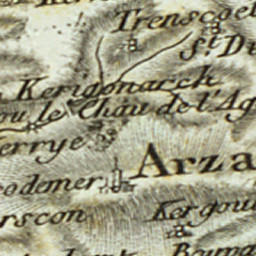 Trenscoet
St. Du
Kerigonarck
ou le Chau de l'Ag
errye
Arza
odemer
rscon
Kergou